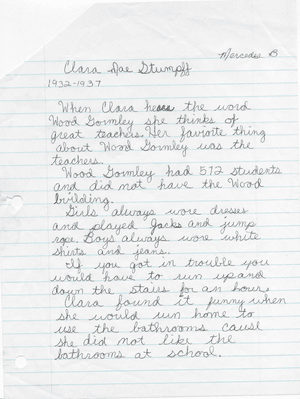 Mercedes B
Clara Mae Stumpff
1932-1937
When Clara hears the word
Wood Gormley she thinks of
great teachers. Her favorite thing
about Wood Gormley was the
teachers.
Wood Gormley had 572 students
and did not have the Wood
building.
Girls always wore dresses
and played Jacks and jump
rope. Boys always wore white
shirts and jeans.
If you got in trouble you
would have to run up and
down the stairs for an hour.
Clara found it funny when
she would run home to
use the bathrooms cause
she did not like the
bathrooms at school.